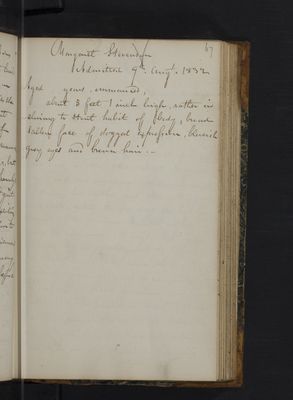 67
Margaret Stevenson
Admitted 9th Augt. 1832
Aged years, unmarried,
about 5 feet 1 inch high, rather in
clining to stout habit of body, broad
face of dogged expression, blueish
gray eyes and brown hair. -